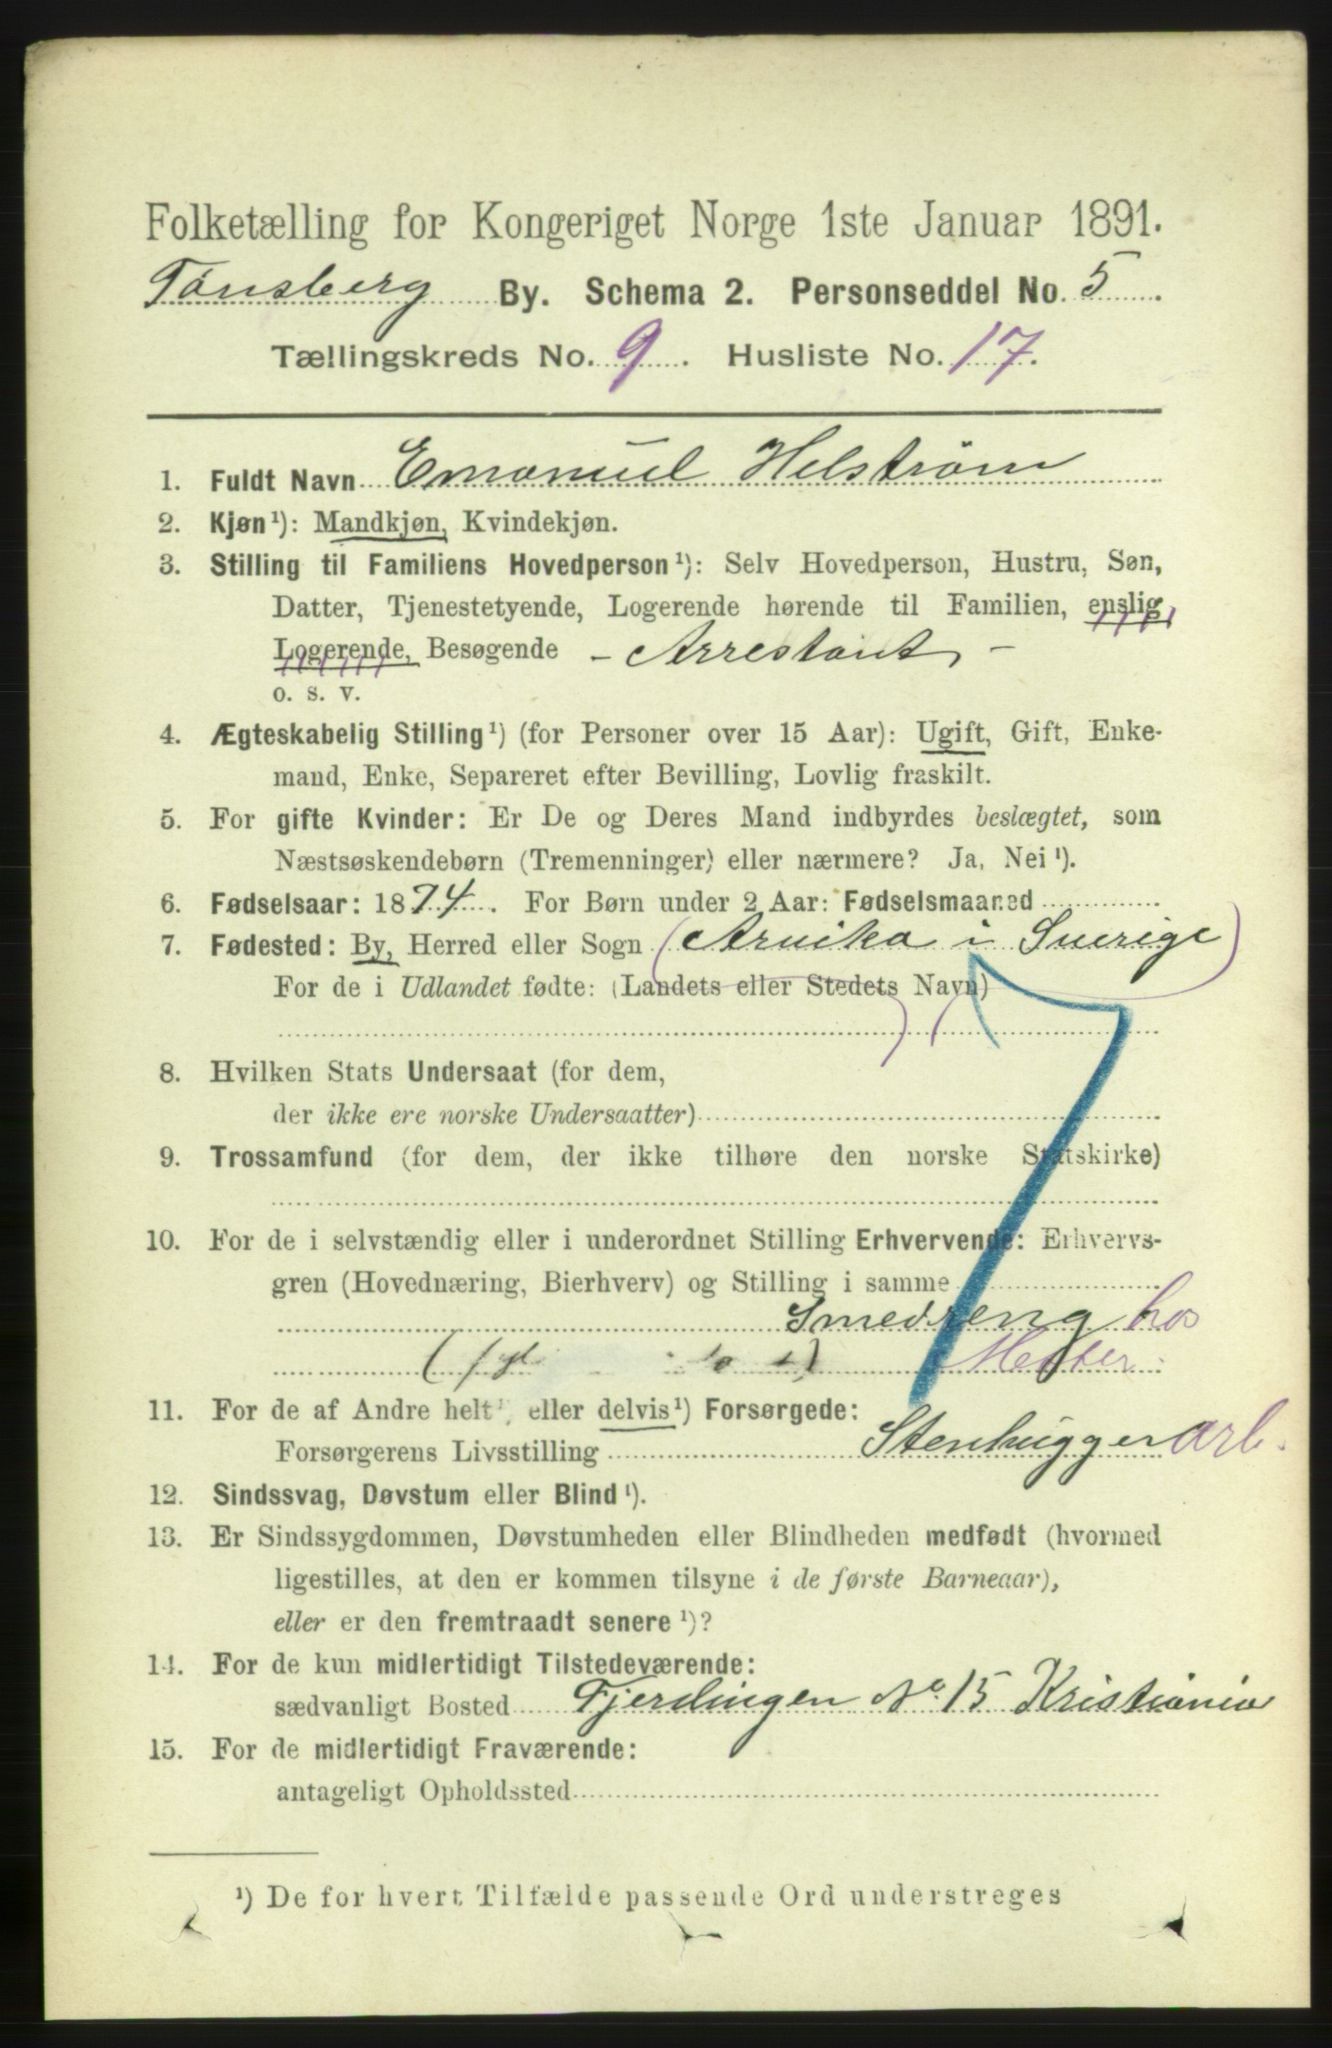 Folketælling for Kongeriget Norge 1ste Januar 1891.
Tønsberg By. Schema 2. Personseddel No. 5.
Tællingskreds No. 9. Husliste No. 17.
1. Fuldt Navn Emanuel Helstrøm
2. Kjøn ¹): Mandkjøn, Kvindekjøn.
3. Stilling til Familiens Hovedperson ¹): Selv Hovedperson, Hustru, Søn,
Datter, Tjenestetyende, Logerende hørende til Familien, enslig
Logerende, Besøgende - Arrestant -
o. s. v.
4. Ægteskabelig Stilling ¹) (for Personer over 15 Aar): Ugift, Gift, Enke-
mand, Enke, Separeret efter Bevilling, Lovlig fraskilt.
5. For gifte Kvinder: Er De og Deres Mand indbyrdes beslægtet, som
Næstsøskendebørn (Tremenninger) eller nærmere? Ja, Nei ¹).
6. Fødselsaar: 1874. For Børn under 2 Aar: Fødselsmaaned
7. Fødested: By, Herred eller Sogn (Arvika i Sverige)
For de i Udlandet fødte: (Landets eller Stedets Navn)
8. Hvilken Stats Undersaat (for dem,
der ikke ere norske Undersaatter)
9. Trossamfund (for dem, der ikke tilhøre den norske Statskirke)
10. For de i selvstændig eller i underordnet Stilling Erhvervende: Erhvervs-
gren (Hovednæring, Bierhverv) og Stilling i samme
Smedreng hos
Mester.
11. For de af Andre helt ¹, eller delvis ¹) Forsørgede:
Forsørgerens Livsstilling Stenhuggerarb.
12. Sindssvag, Døvstum eller Blind ¹).
13. Er Sindssygdommen, Døvstumheden eller Blindheden medfødt (hvormed
ligestilles, at den er kommen tilsyne i de første Barneaar),
eller er den fremtraadt senere ¹)?
14. For de kun midlertidigt Tilstedeværende:
sædvanligt Bosted Fjerdingen No 15 Kristiania
15. For de midlertidigt Fraværende:
antageligt Opholdssted
¹) De for hvert Tilfælde passende Ord understreges
7